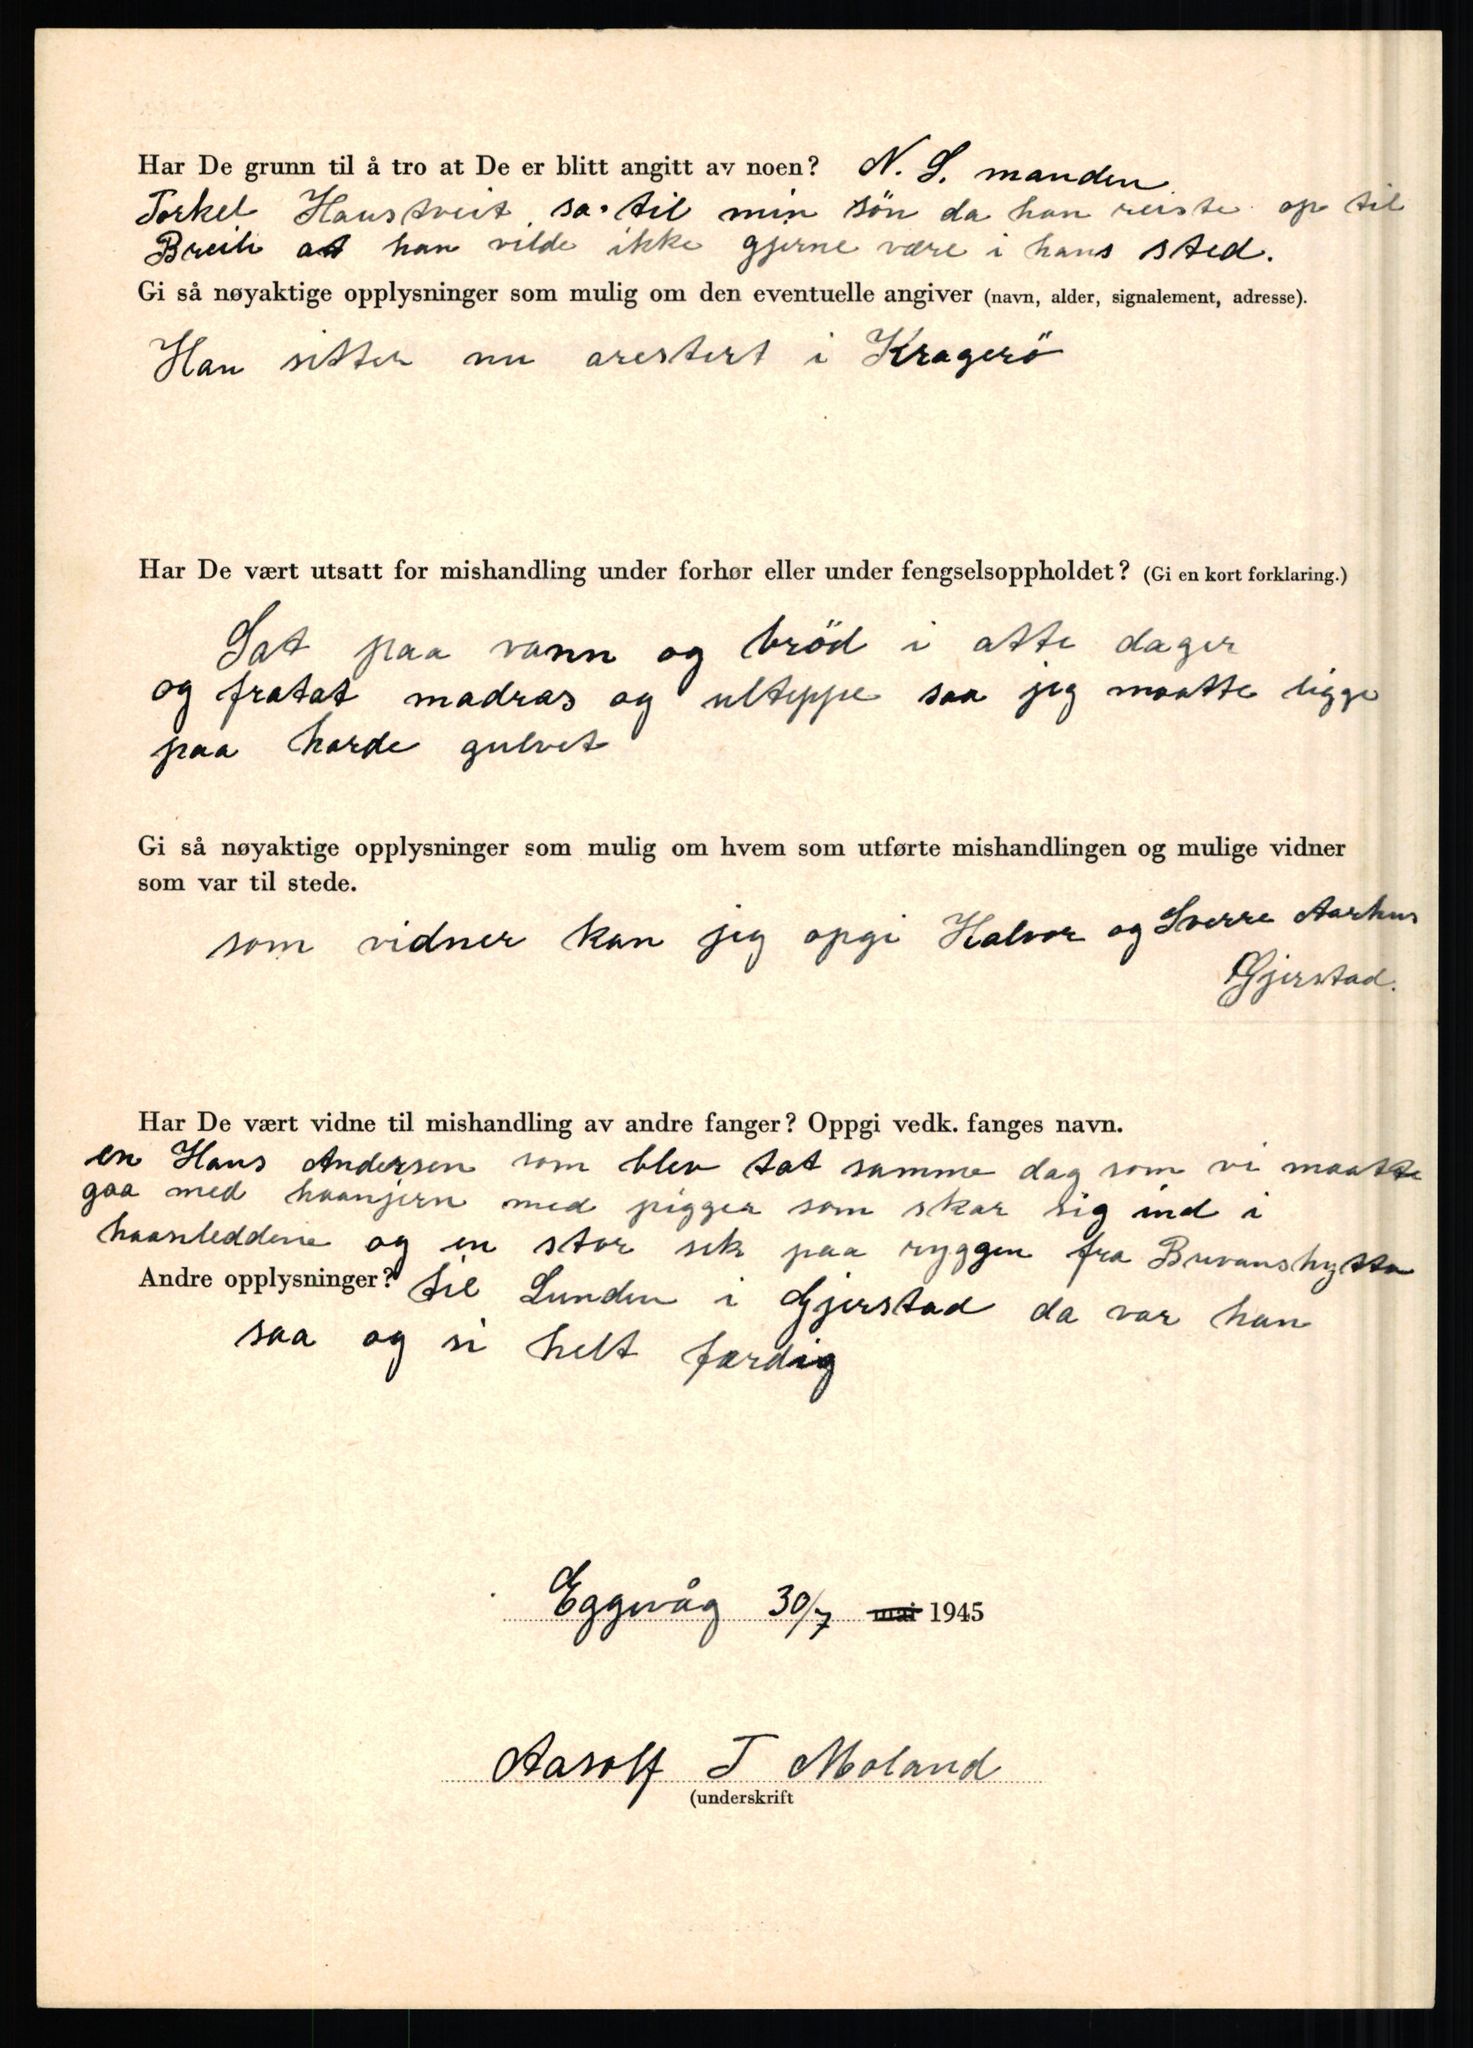 Har De grunn til å tro at De er blitt angitt av noen? N. S. manden
Torkel Haustveit sa til min sön da han reiste op til
Breili at han vilde ikke gjerne være i hans sted.
Gi så nøyaktige opplysninger som mulig om den eventuelle angiver (navn, alder, signalement, adresse).
Han sitter nu arestert i Kragerö
Har De vært utsatt for mishandling under forhør eller under fengselsoppholdet? (Gi en kort forklaring.)
Sat paa vann og bröd i otte dager
og fratat madras og ulteppe saa jeg maatte ligge
paa harde gulvet
Gi så nøyaktige opplysninger som mulig om hvem som utførte mishandlingen og mulige vidner
som var til stede.
som vidner kan jeg opgi Halvor og Sverre Aarhus
Gjerstad.
Har De vært vidne til mishandling av andre fanger? Oppgi vedk. fanges navn.
en Hans Andersen som blev tat samme dag som vi maatte
gaa med haanjern med pigger som skar sig ind i
haanleddene og en stor sek paa ryggen fra Buvannshytta
Andre opplysninger? til Lunden i Gjerstad da var han
saa og si helt færdig
Eggevåg 30/7 mai 1945
Aasolf T Moland
(underskrift